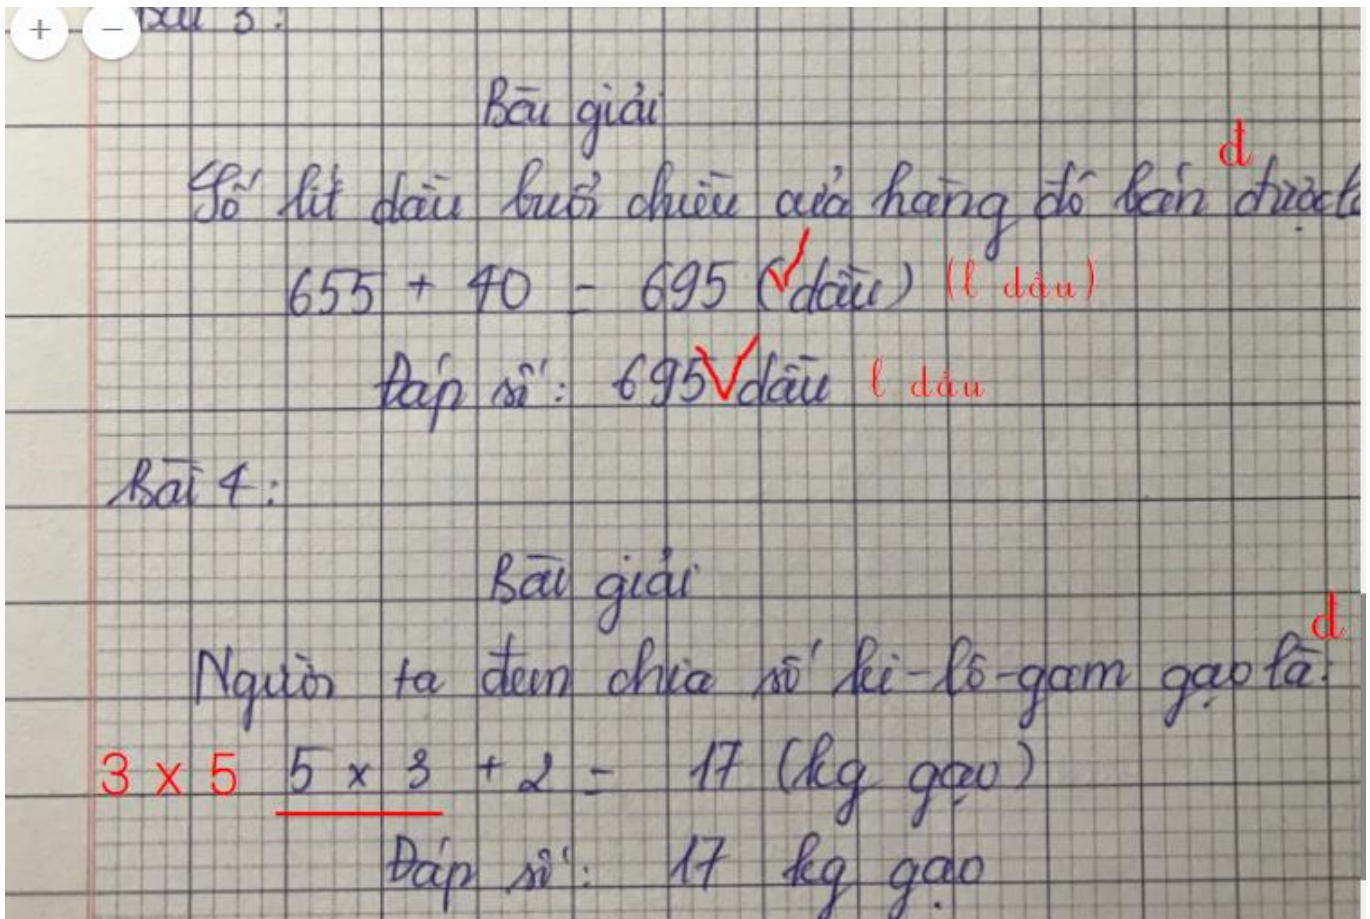 + −
Bài 3:
Bài giải
đ
Số lít dầu buổi chiều cửa hàng đó bán được
655 + 40 = 695 ( dầu) (l dầu)
Đáp số: 695 dầu l dầu
Bài 4:
Bài giải
đ
Người ta đem chia số ki-lô-gam gạo là:
3 x 5 5 x 3 + 2 = 17 (kg gạo)
Đáp số: 17 kg gạo